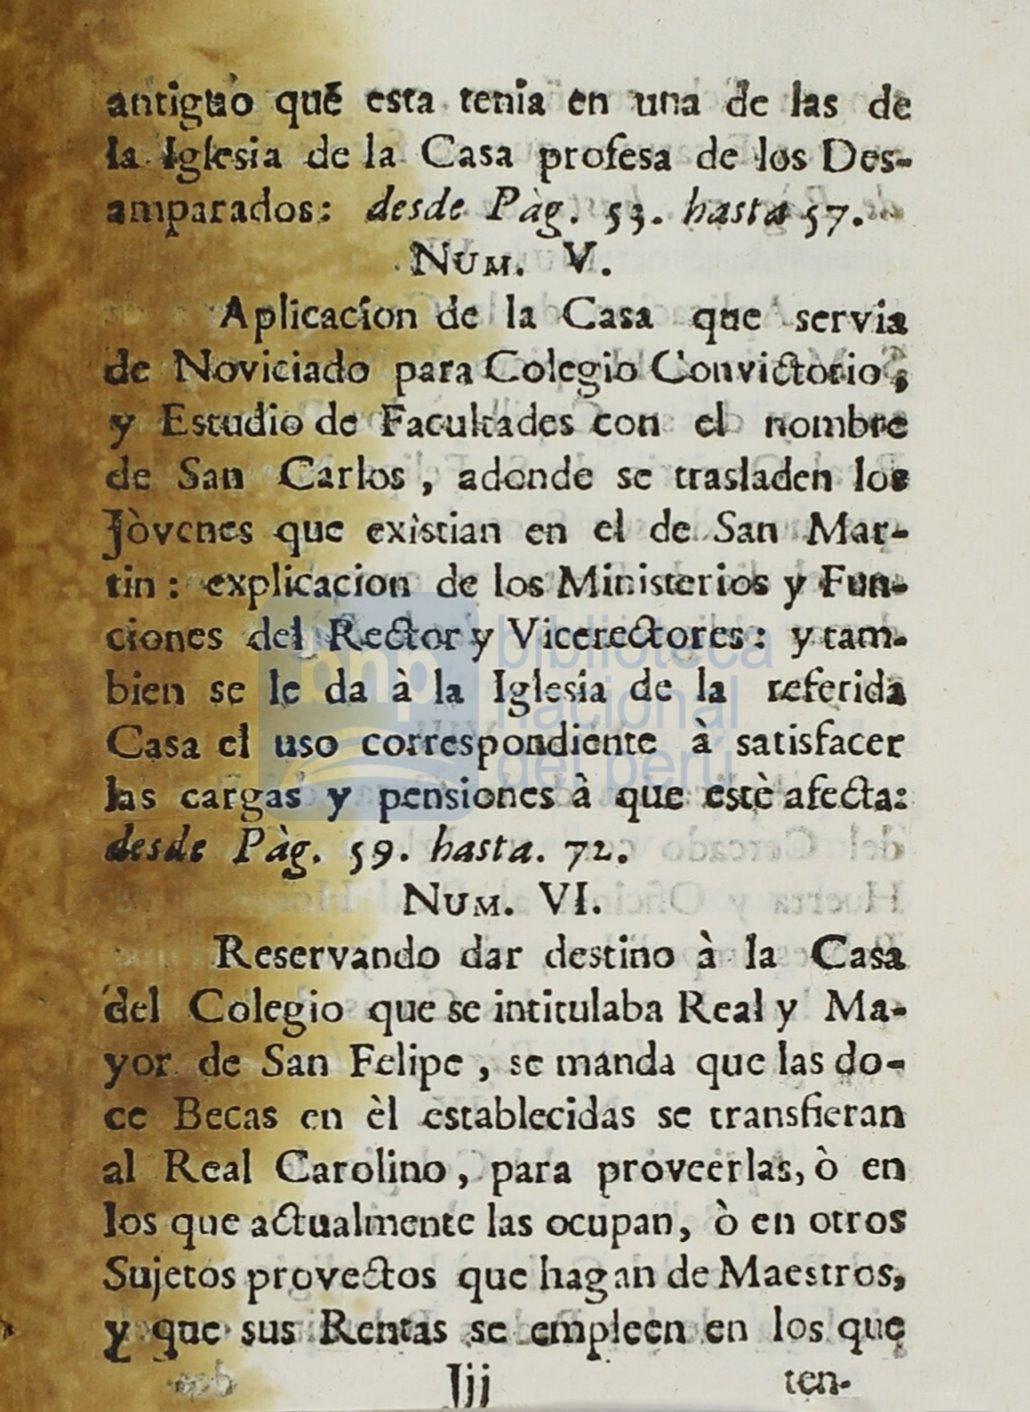 antiguo què esta tenia en una de las de
la Iglesia de la Casa profesa de los Des-
amparados: desde Pàg. 53. hasta 57.
NUM. V.
Aplicacion de la Casa que servia
de Noviciado para Colegio Convictorio,
y Estudio de Facultades con el nombre
de San Carlos, adonde se trasladen los
Jòvenes que exìstian en el de San Mar-
tin: explicacion de los Ministerios y Fun-
ciones del Rector y Vicerectores: y tam-
bien se le da à la Iglesia de la referida
Casa el uso correspondiente à satisfacer
las cargas y pensiones à que estè afecta:
desde Pàg. 59. hasta. 72.
NUM. VI.
Reservando dar destino à la Casa
del Colegio que se intitulaba Real y Ma-
yor de San Felipe, se manda que las do-
ce Becas en èl establecidas se transfieran
al Real Carolino, para proveerlas, ò en
los que actualmente las ocupan, ò en otros
Sujetos provectos que hagan de Maestros,
y que sus Rentas se empleen en los que
Iii ten-
bnp biblioteca
nacional
del perú